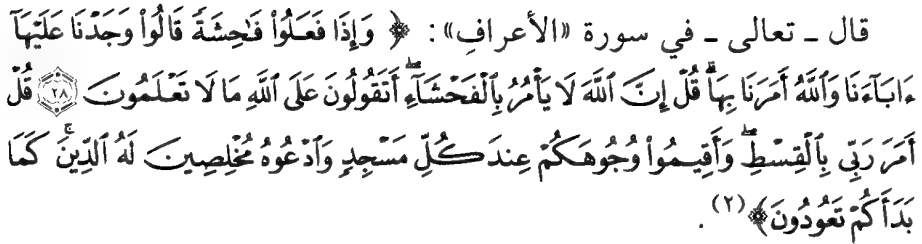 قال ـ تعالى ـ في سورة «الأعراف»: ﴿ وَإِذَا فَعَلُوا۟ فَـٰحِشَةً قَالُوا۟ وَجَدْنَا عَلَيْهَآ
ءَابَآءَنَا وَٱللَّهُ أَمَرَنَا بِهَا ۗ قُلْ إِنَّ ٱللَّهَ لَا يَأْمُرُ بِٱلْفَحْشَآءِ ۖ أَتَقُولُونَ عَلَى ٱللَّهِ مَا لَا تَعْلَمُونَ ۝٢٨ قُلْ
أَمَرَ رَبِّى بِٱلْقِسْطِ ۖ وَأَقِيمُوا۟ وُجُوهَكُمْ عِندَ كُلِّ مَسْجِدٍ وَٱدْعُوهُ مُخْلِصِينَ لَهُ ٱلدِّينَ ۚ كَمَا
بَدَأَكُمْ تَعُودُونَ﴾(٢).